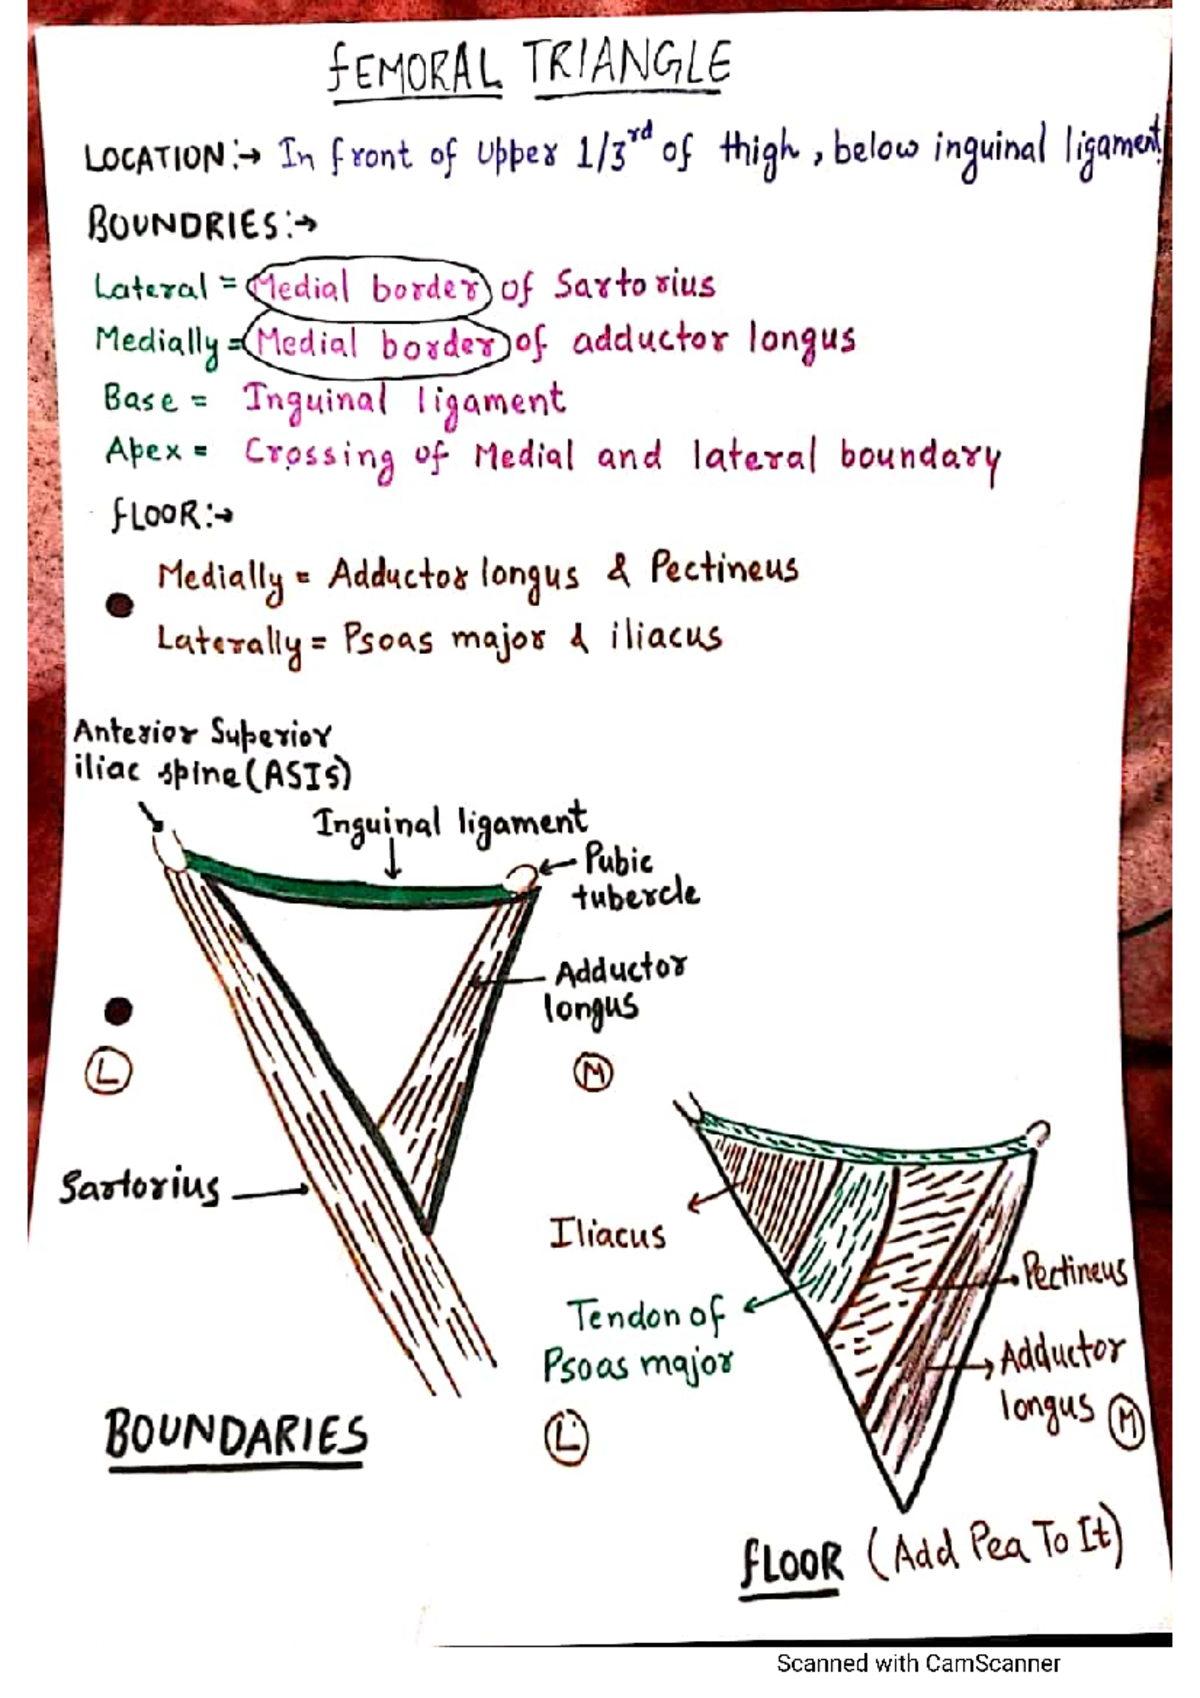 FEMORAL TRIANGLE
LOCATION:→ In front of Upper 1/3rd of thigh, below inguinal ligament.
BOUNDRIES:→
Lateral = Medial border of Sartorius
Medially = Medial border of adductor longus
Base = Inguinal ligament
Apex = Crossing of Medial and lateral boundary
FLOOR:→
Medially = Adductor longus & Pectineus
Laterally = Psoas major & iliacus
Anterior Superior
iliac spine (ASIS)
Inguinal ligament
Pubic
tubercle
Adductor
longus
L
M
Sartorius
BOUNDARIES
Iliacus
Tendon of
Psoas major
Pectineus
Adductor
longus
M
L
FLOOR (Add Pea To It)
Scanned with CamScanner